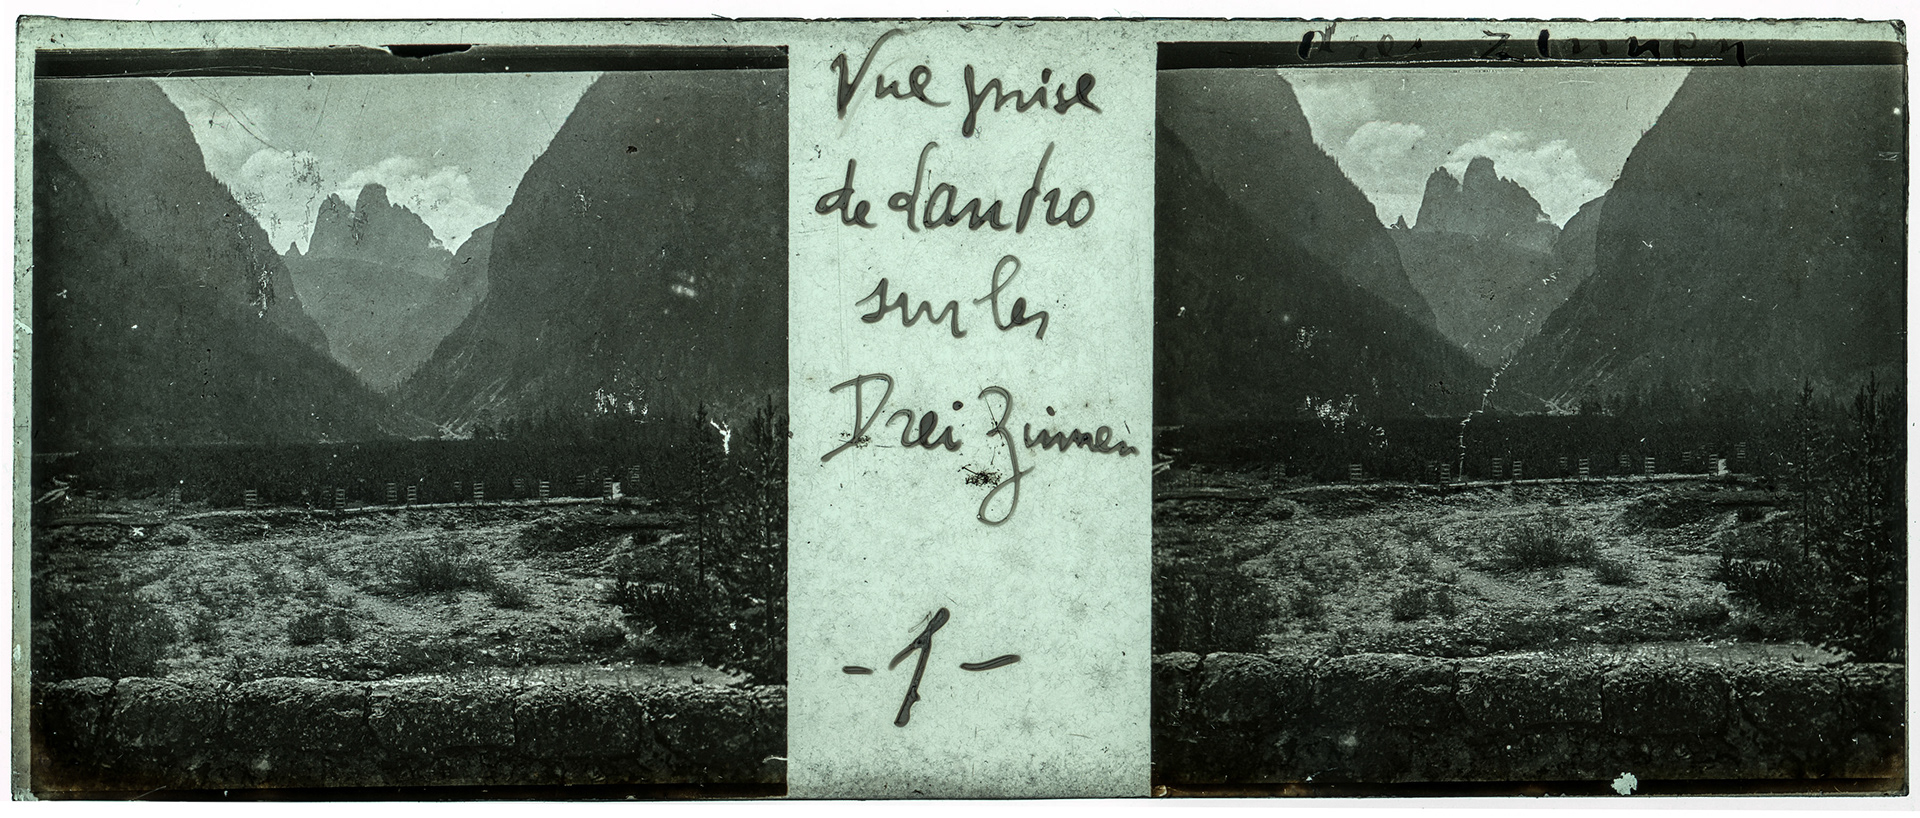 Vue prise
de Landro
sur les
Drei Zinnen
- 1 -
Drei Zinnen